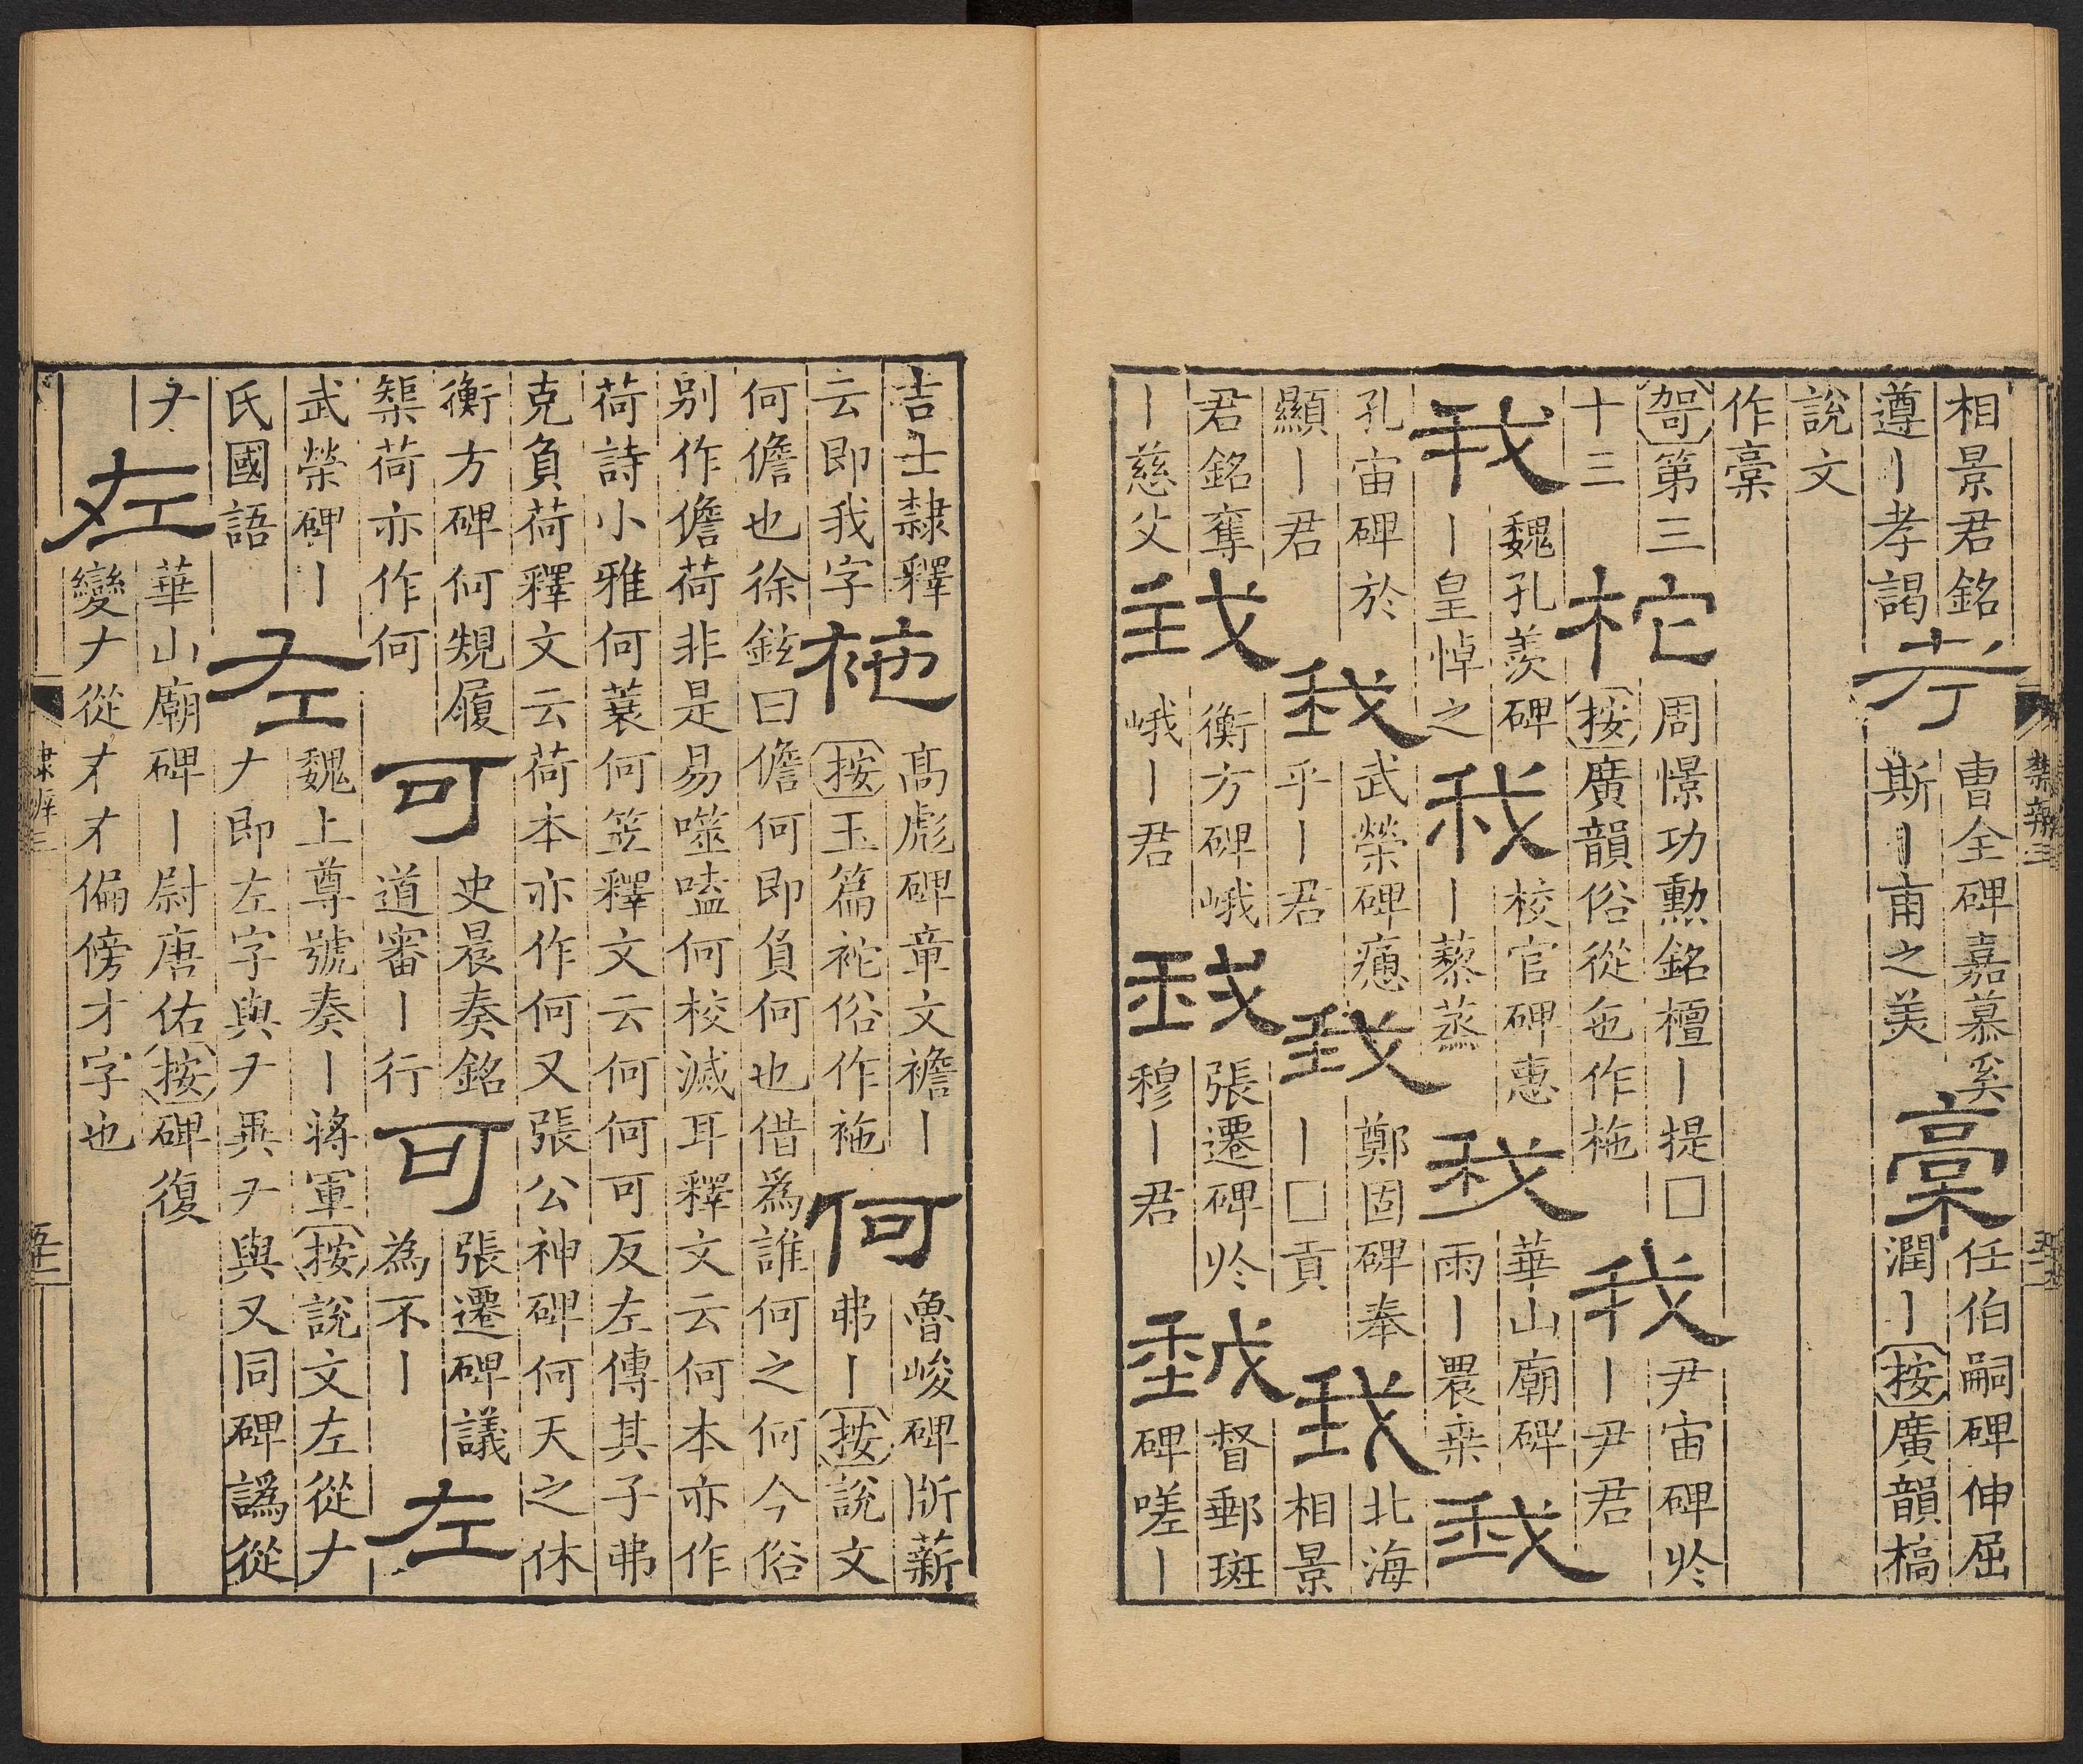 相景君銘
遵〡孝謁
考
曹全碑嘉慕奚
斯〡甫之美
稾
任伯嗣碑伸屈
潤〡按廣韻槁
說文
作稾
哿第三
十三
柁
周憬功勲銘檀〡提□
按廣韻俗從㐌作柂
我
尹宙碑於
〡尹君
我
魏孔羨碑
〡皇悼之
我
校官碑惠
〡藜蒸
我
華山廟碑
雨〡農桒
我
孔宙碑於
顯〡君
我
武榮碑瘱
乎〡君
我
鄭固碑奉
〡□貢
我
北海
相景
君銘奪
〡慈父
我
衡方碑峨
峨〡君
我
張遷碑於
穆〡君
我
督郵斑
碑嗟〡
吉士隸釋
云即我字
袘
高彪碑章文襜〡
按玉篇袉俗作袘
何
魯峻碑斯薪
弗〡按說文
何儋也徐鉉曰儋何即負何也借爲誰何之何今俗
別作儋荷非是易噬嗑何校滅耳釋文云何本亦作
荷詩小雅何蓑何笠釋文云何何可反左傳其子弗
克負荷釋文云荷本亦作何又張公神碑何天之休
衡方碑何䂓履
榘荷亦作何
可
史晨奏銘
道審〡行
可
張遷碑議
為不〡
左
武榮碑〡
氏國語
左
魏上尊號奏〡將軍按說文左從𠂇
𠂇即左字與𠂇異𠂇與又同碑譌從
𠂇
左
華山廟碑〡尉唐佑按碑復
變𠂇從才才偏傍才字也
隸辨三